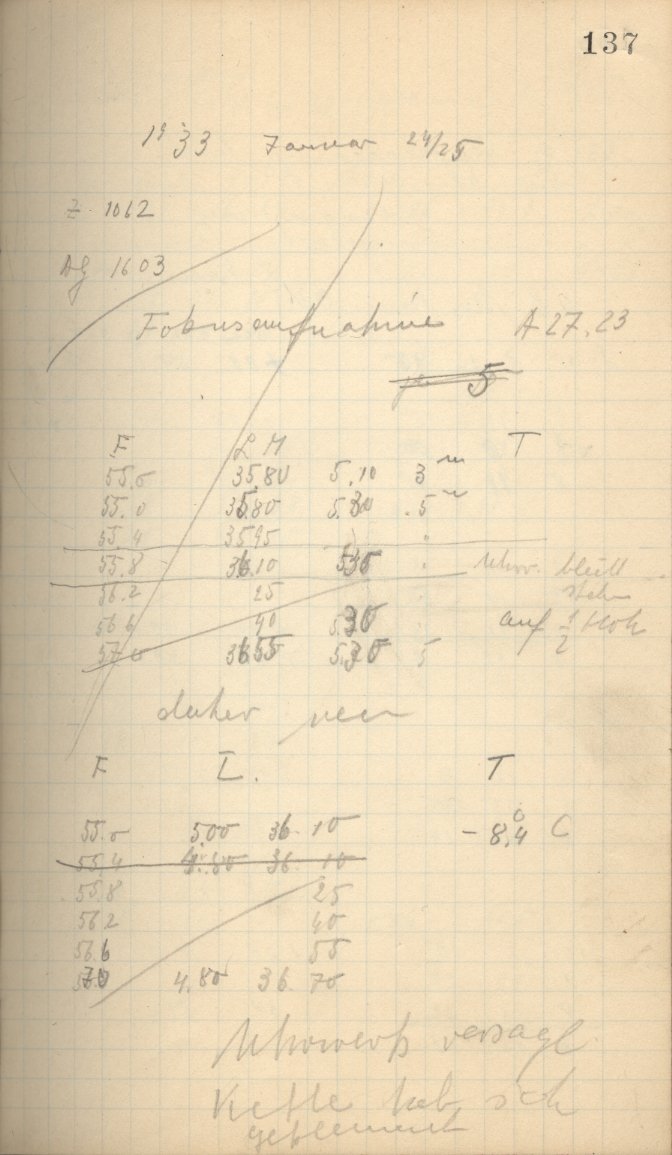 137
1933 Januar 24/25
Z 1062
AG 1603
Fokusaufnahme A 27.23
5
F L M T
55.0 35.80 5.10 3 m
55.0 35.80 5.30 .5 m
55.4 35 95 "
55.8 36.10 535 " Uhrw. bleibt
stehn
56.2 25
56 6 40 5.30 auf 1/2 Stok
57 0 3655 5.30 5
daher neu
F L. T
55.0 500 36 10 - 8,4° C
55,4 4.80 36 10
55.8 25
56 2 40
56.6 55
70 4.80 36. 70
Uhrwerk versagt
Kette hat sich
geklemmt